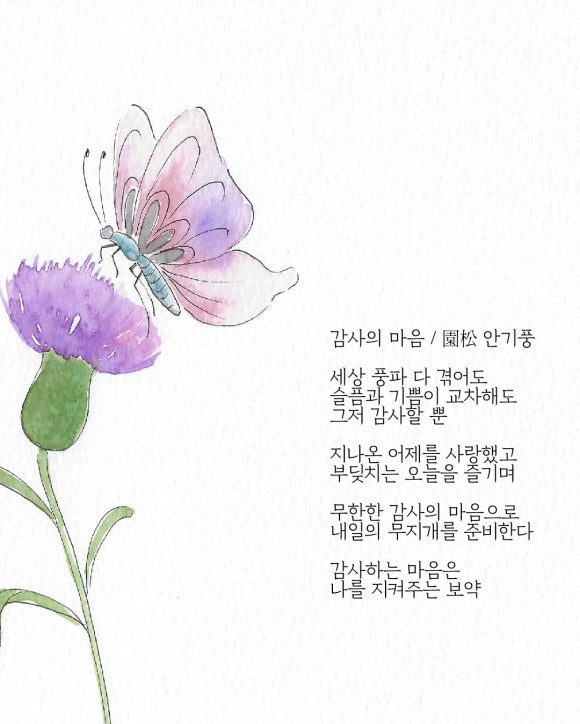 감사의 마음 / 園松 안기풍
세상 풍파 다 겪어도
슬픔과 기쁨이 교차해도
그저 감사할 뿐
지나온 어제를 사랑했고
부딪치는 오늘을 즐기며
무한한 감사의 마음으로
내일의 무지개를 준비한다
감사하는 마음은
나를 지켜주는 보약